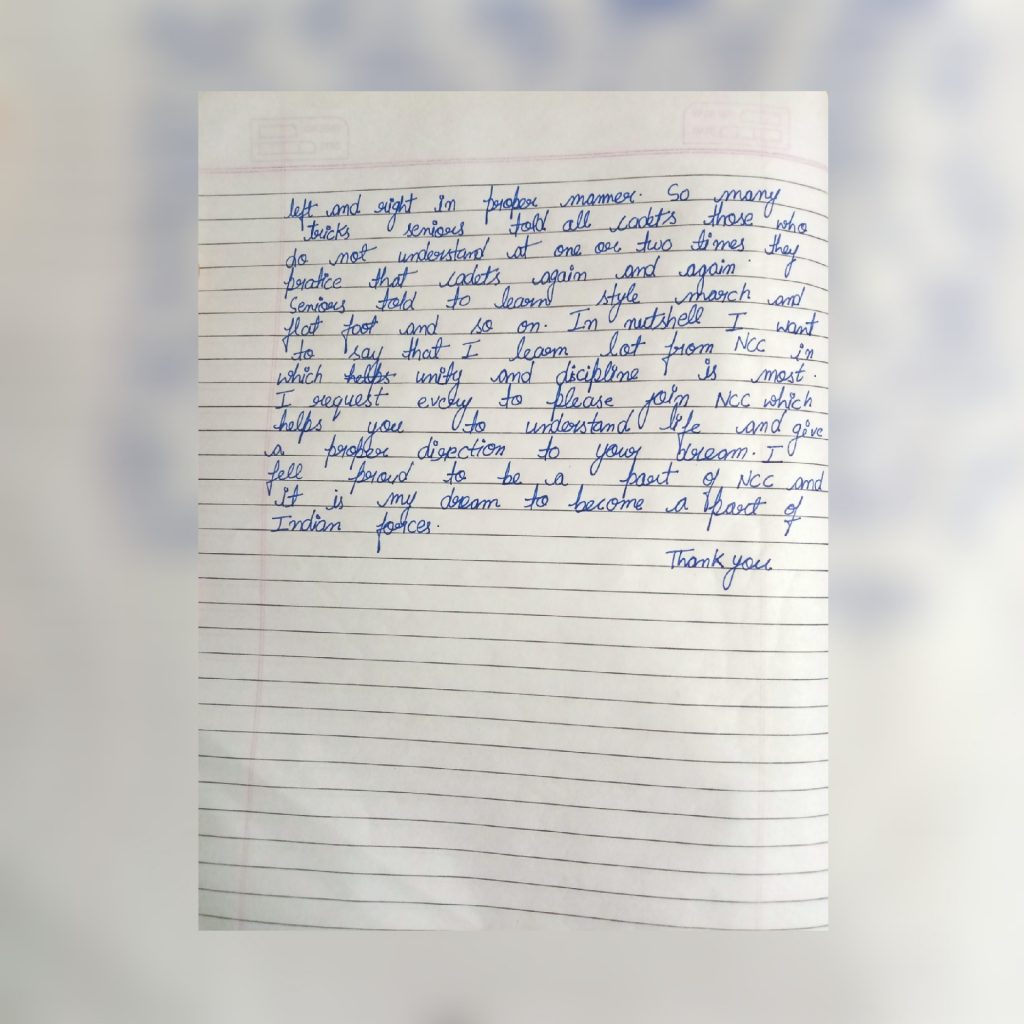 left and right in proper manner. So many
tricks seniors told all cadets those who
do not understand at one or two times they
pratice that cadets again and again.
Seniors told to learn style march and
flat foot and so on. In nutshell I want
to say that I learn lot from NCC in
which helps unity and discipline is most.
I request every to please join NCC which
helps you to understand life and give
a proper direction to your dream. I
fell proud to be a part of NCC and
it is my dream to become a part of
Indian forces.
Thank you